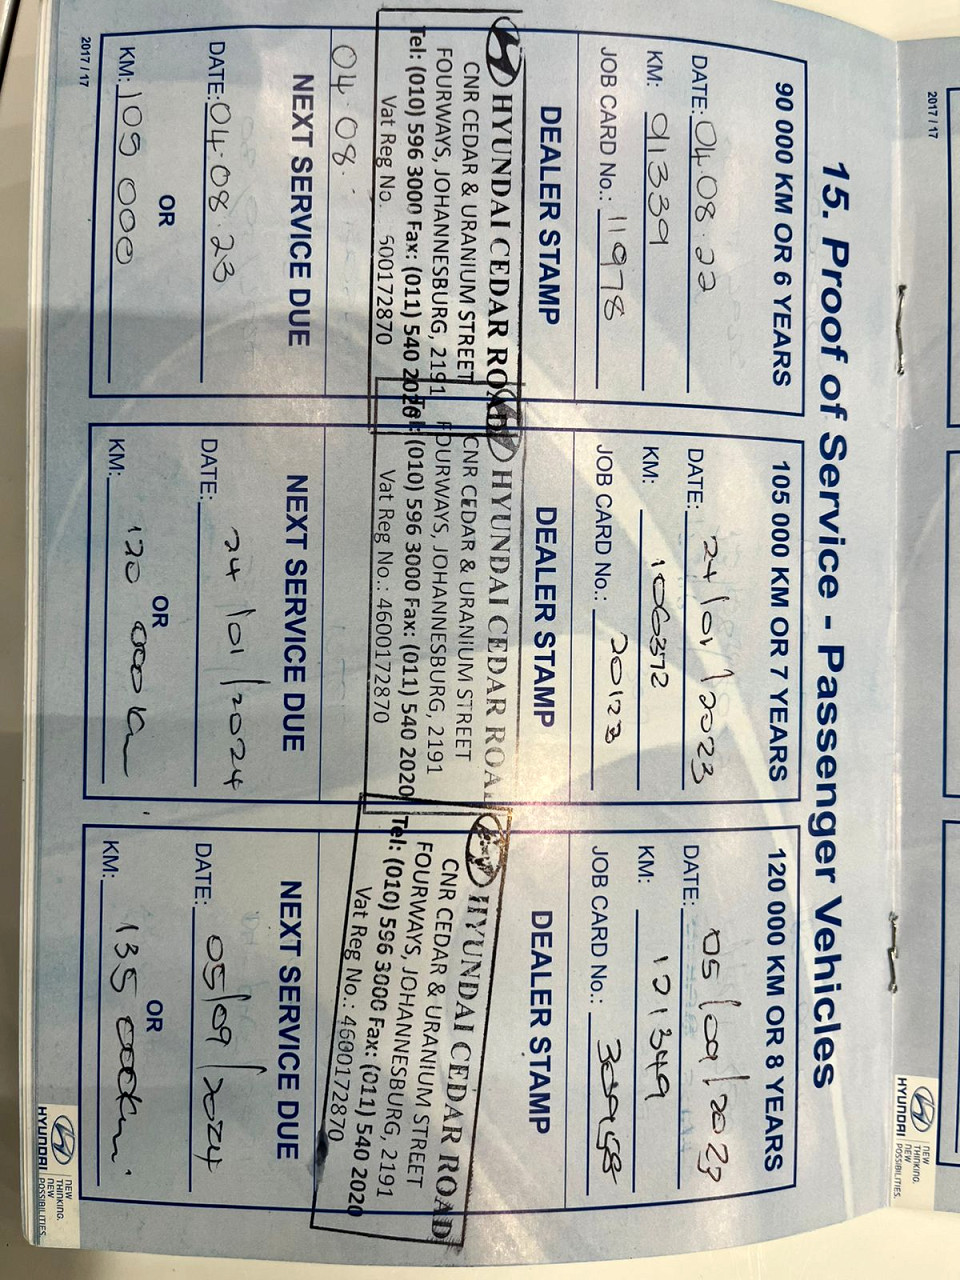 15. Proof of Service - Passenger Vehicles
90 000 KM OR 6 YEARS
DATE: 04.08.22
KM: 91339
JOB CARD No.: 11978
DEALER STAMP
HYUNDAI CEDAR ROAD
CNR CEDAR & URANIUM STREET
FOURWAYS, JOHANNESBURG, 2191
Tel: (010) 596 3000 Fax: (011) 540 2020
Vat Reg No.
04.08.
NEXT SERVICE DUE
DATE: 04.08.23
OR
KM: 105 000
105 000 KM OR 7 YEARS
DATE: 24/01/2023
KM: 106372
JOB CARD No.: 20123
DEALER STAMP
HYUNDAI CEDAR ROA
CNR CEDAR & URANIUM STREET
FOURWAYS, JOHANNESBURG, 2191
Tel: (010) 596 3000 Fax: (011) 540 2020
Vat Reg No.: 4600172870
NEXT SERVICE DUE
DATE: 24/01/2024
OR
KM: 120 000 km
120 000 KM OR 8 YEARS
DATE: 05/09/2023
KM: 121349
JOB CARD No.:
DEALER STAMP
HYUNDAI CEDAR ROAD
CNR CEDAR & URANIUM STREET
FOURWAYS, JOHANNESBURG, 2191
Tel: (010) 596 3000 Fax: (011) 540 2020
Vat Reg No.: 4600172870
NEXT SERVICE DUE
DATE: 05/09/2024
OR
KM: 135 000km.
2017 / 17
HYUNDAI
NEW
THINKING.
NEW
POSSIBILITIES.
2017 / 17
HYUNDAI
NEW
THINKING.
NEW
POSSIBILITIES.